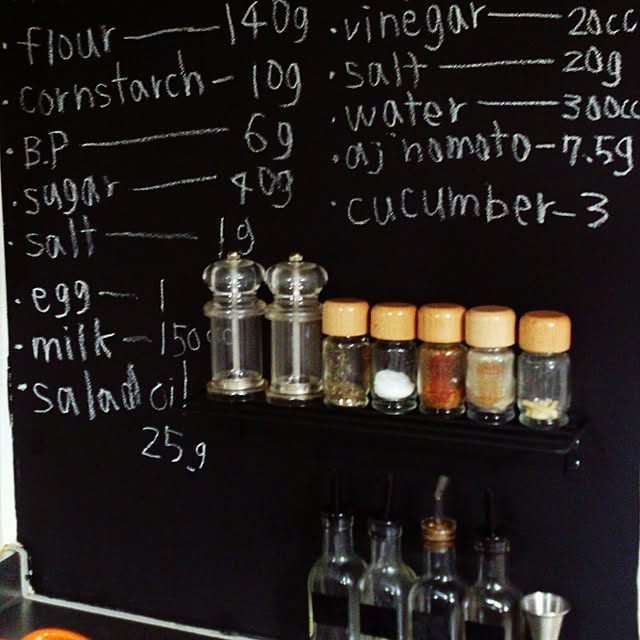 · flour — 140g
· cornstarch – 10g
· B.P — 6g
· sugar — 40g
· salt — 1g
· egg — 1
· milk – 150cc
· salad oil
25g
· vinegar — 20cc
· salt — 20g
· water — 300cc
· aj'nomoto – 7.5g
· cucumber – 3